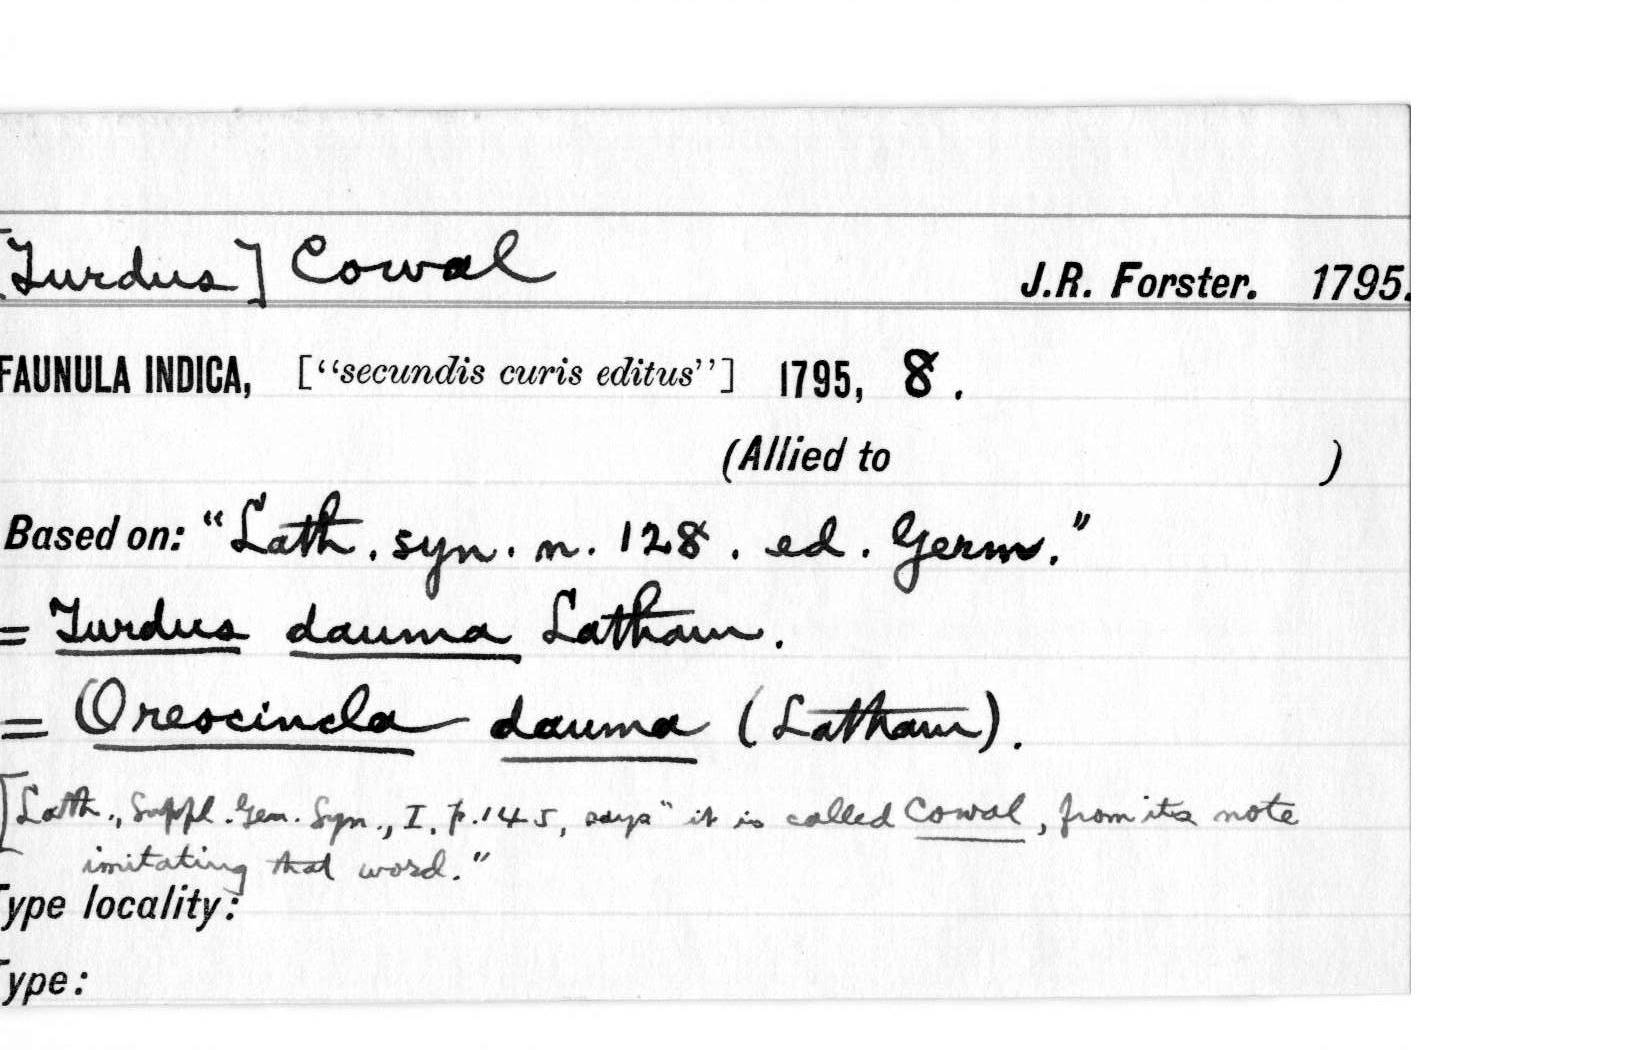 [Turdus] Cowal J.R. Forster. 1795.
FAUNULA INDICA, ["secundis curis editus"] 1795, 8.
(Allied to )
Based on: "Lath. syn. n. 128. ed. Germ."
= Turdus dauma Latham.
= Oreocincla dauma (Latham).
[Lath., Suppl. Gen. Syn., I, p. 145, says "it is called Cowal, from its note
imitating that word."
Type locality:
Type: